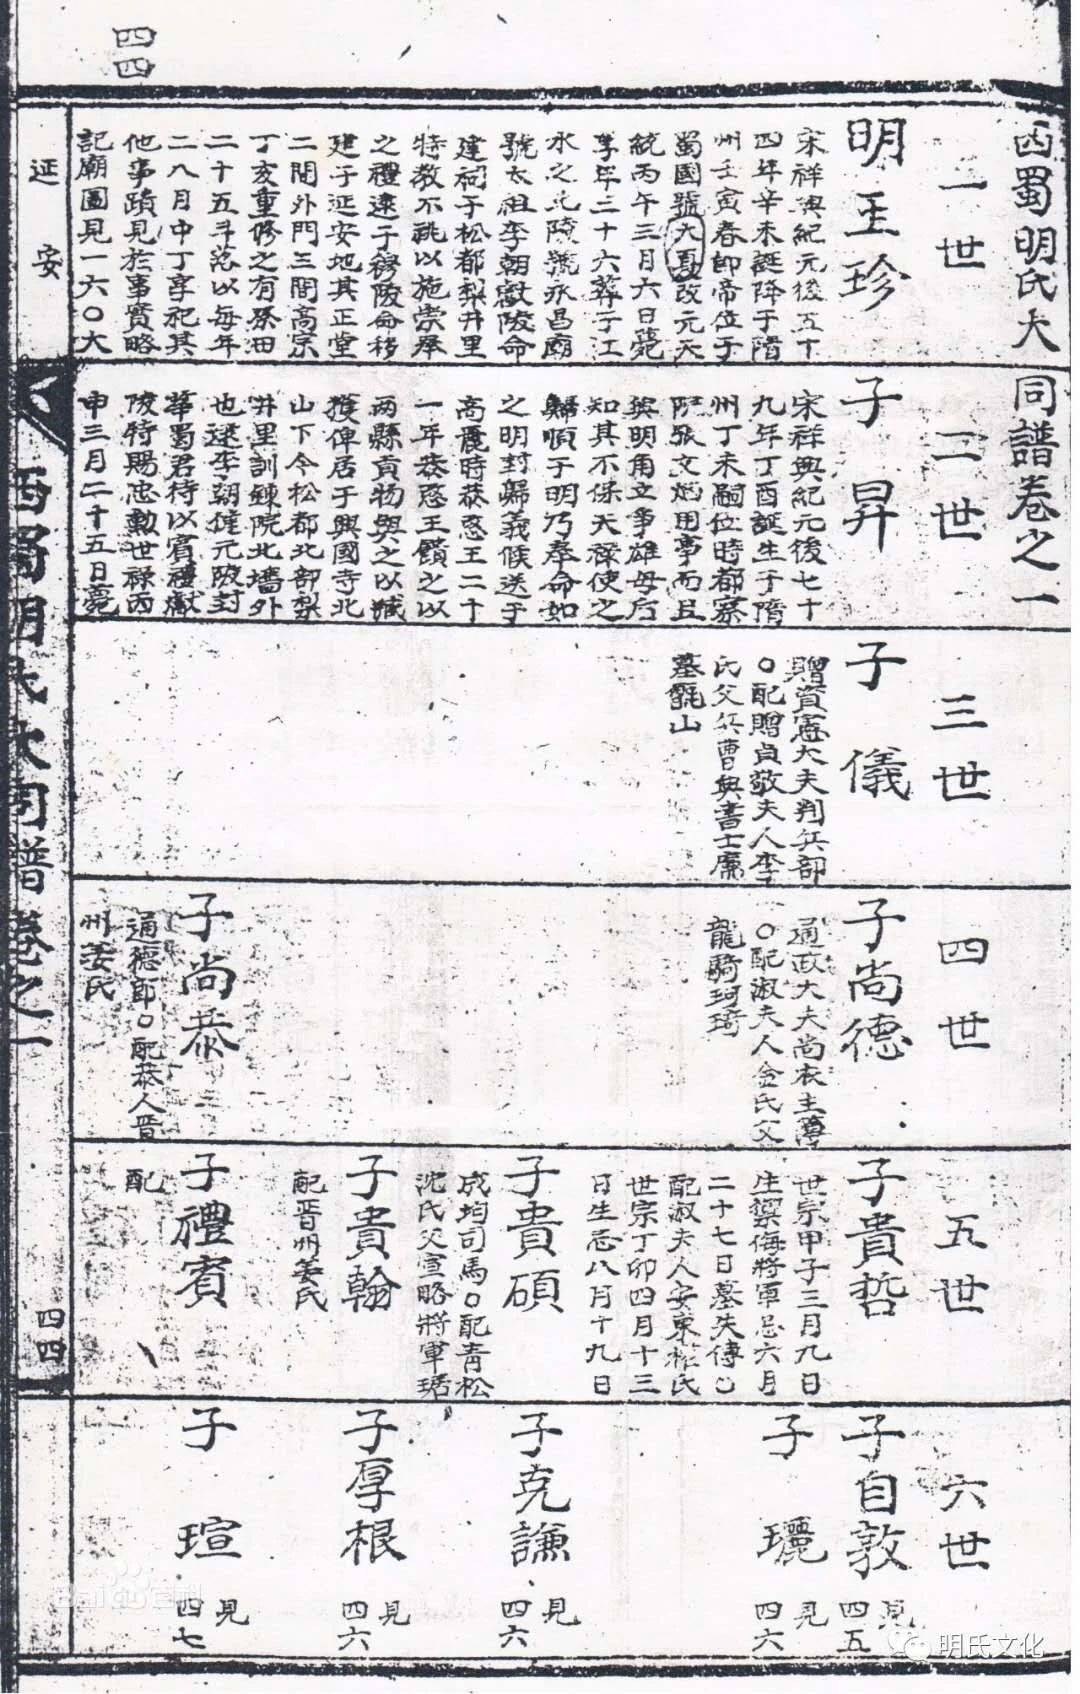 四四
西蜀明氏大同譜卷之一
一世
明玉珍
宋祥興紀元後五十
四年辛未誕降于隋
州壬寅春卽帝位于
蜀國號大夏改元天
統丙午三月六日薨
享年三十六葬于江
水之北陵號永昌廟
號太祖李朝獻陵命
建祠于松都梨井里
特教不祧以施崇奉
之禮逮于穆陵命移
建于延安地其正堂
二間外門三間高宗
丁亥重修之有祭田
二十五斗落以每年
二八月中丁享祀其
他事蹟見於事實略
記廟圖見一六〇大
延安
二世
子昇
宋祥興紀元後七十
九年丁酉誕生于隋
州丁未嗣位時都察
院張文炳用事而且
與明角立爭雄母后
知其不保天祿使之
歸順于明乃奉命如
之明封歸義侯送于
高麗時恭愍王二十
一年恭愍王饋之以
兩縣貢物與之以臧
獲俾居于興國寺北
山下今松都北部梨
井里訓鍊院北墻外
也逮李朝健元陵封
華蜀君待以賓禮獻
陵特賜忠勳世祿丙
申三月二十五日薨
三世
子儀
贈資憲大夫判兵部
〇配贈貞敬夫人李
氏父兵曹典書士廉
墓甑山
四世
子尚德
通政大夫尚衣主簿
〇配淑夫人金氏父
龍騎珂琦
子尚恭
通德郎〇配恭人晋
州姜氏
五世
子貴哲
世宗甲子三月九日
生禦侮將軍忌六月
二十七日墓失傳〇
配淑夫人安東權氏
世宗丁卯四月十三
日生忌八月十九日
子貴碩
成均司馬〇配青松
沈氏父宣略將軍琚
子貴翰
配晋州姜氏
子禮賓
配
六世
子自敦
見四五
子䕻
見四六
子克謙
見四六
子厚根
見四六
子瑄
見四七
西蜀明氏大同譜卷之一
四四
Baidu百科
明氏文化